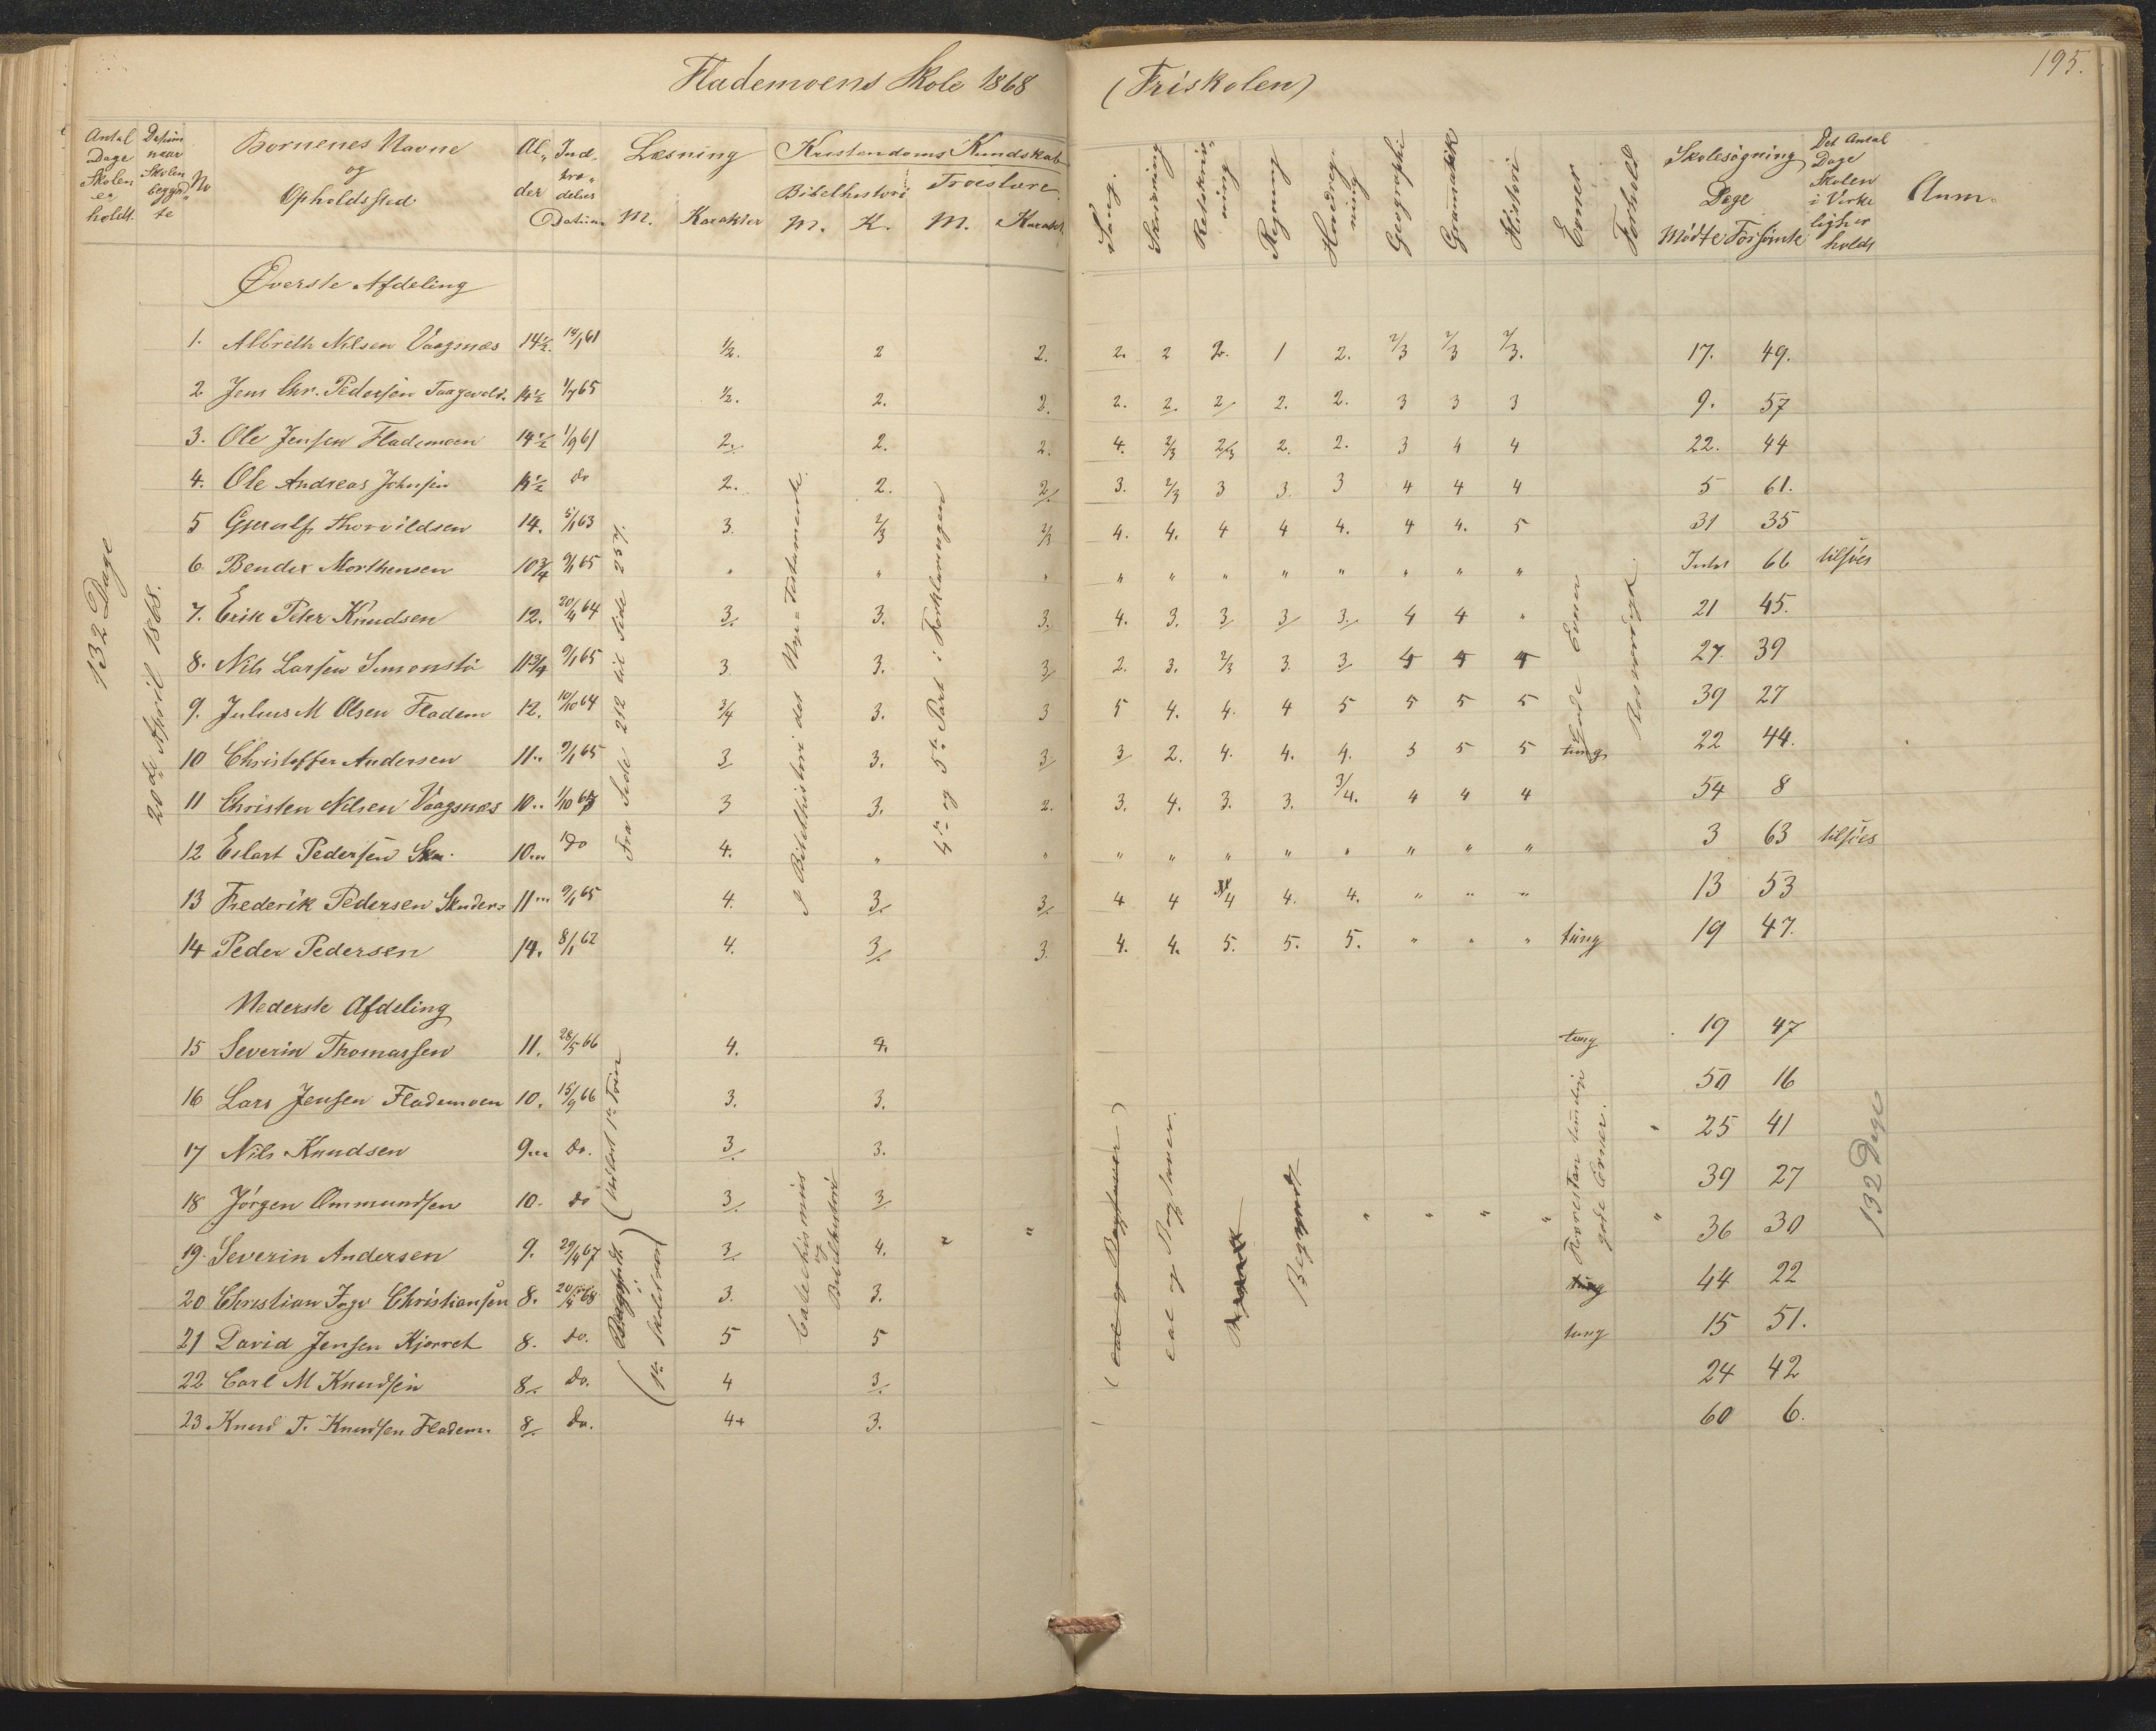 Flademoens Skole 1868 (Friskolen) 195.
Antal Dage Skolen er holdt.
Datum naar Skolen begynd„te
No
Børnenes Navne og Opholdssted
Al„der
Ind„træ„delses Datum
Læsning
M. Karakter
Kristendoms Kundskab
Bibelhistori
M. K.
Troeslære
M. Karakt.
Sang.
Skrivning
Retskriv„ning
Regning
Hovedreg„ning
Geographi
Gramatik
Histori
Evner
Forhold
Skolesøgning
Dage
Mødte Forsømte
Det Antal Dage Skolen i Virke ligher holdt
Anm.
132 Dage
20de April 1868.
Øverste Afdeling
1. Albreth Nilsen Vaagsnæs 14½. 14/1 61 ½. 2 2. 2. 2 2. 1 2. 2/3 2/3 2/3. 17. 49.
2 Jens Chr. Pedersen 14½ 1/7 65 ½. 2. 2. 2. 2. 2/ 2. 2. 3 3 3 9. 57
3. Ole Jensen Flademoen 14½ 1/9 61 2. 2. 2. 4. 2/3 2/3 2. 2. 3 4 4 22. 44
4. Ole Andreas Johnsen 14½ do 2. 2. 2/. 3. 2/3 3 3. 3 4 4 4 5 61.
5 Gjerulf Thorvildsen 14. 5/1 63 3. 2/3 2/3 4. 4. 4 4 4. 4 4. 5 31 35
6. Bendix Morthensen 10¾ 9/1 65 " " " " " " " " " " " 66 tilføies
7. Erik Peter Knudsen 12. 20/4 64 3/. 3. 3. 4. 3. 3/ 3/ 3/. 4 4 " 21 45.
8. Nils Larsen Simonstø 11¾ 9/1 65 3. 3. 3/ 2. 3. 2/3 3. 3/ 4 4 4 27. 39
9. Julius M Olsen Fladem 12. 10/10 64 3/4 3. 3 5 4. 4. 4 5 5 5 5 39 27
10 Christoffer Andersen 11.. 9/1 65 3/ 3. 3/ 3/ 2. 4. 4. 4. 5 5 5 tung 22 44.
11 Christen Nilsen Vaagsnæs 10.. 3 3. 2. 3. 4. 3. 3. 3/4. 4 4 4 54 8
12 Eilart Pedersen 10... do 4. " " " " " " " " " " 3 63 tilføies
13 Frederik Pedersen 11... 9/1 65 4. 3/. 3/. 4 4 4 4. 4. " " " 13 53
14 Peder Pedersen 14. 8/1 62 4. 3/. 3. 4. 4. 5. 5. 5. " " " tung 19 47.
Fra Side 212 til Side 257.
I Bibelhistori det Nye=Testamente.
4de og 5te Part i Forklaringen
Gode Evner
Rosværdigt.
Nederste Afdeling
15 Severin Thomassen 11. 28/5 66 4. 4. tung 19 47
16 Lars Jensen Flademoen 10. 15/9 66 3. 3. 50 16
17 Nils Knudsen 9... do. 3/. 3. " 25 41
18 Jörgen Ommundsen 10. do 3/. 3/. " " " " " 39 27
19. Severin Andersen 9. 29/4 67 3/. 4. " " 36 30
20 Christian Inge Christiansen 8. 3. 3. tung 44 22
21 David Jensen Kjörret 8. do. 5 5 tung 15 51.
22 Carl M Knudsen 8/. do. 4 3/. 24 42
23 Knud T. Knudsen Fladem. 8/. do. 4+ 3. 60 6.
Begyndt
Catechismus og Bibelhistori
(eal og Bogstaver)
eal og Bogstaver.
Begyndt
gode Evner.
132 Dage